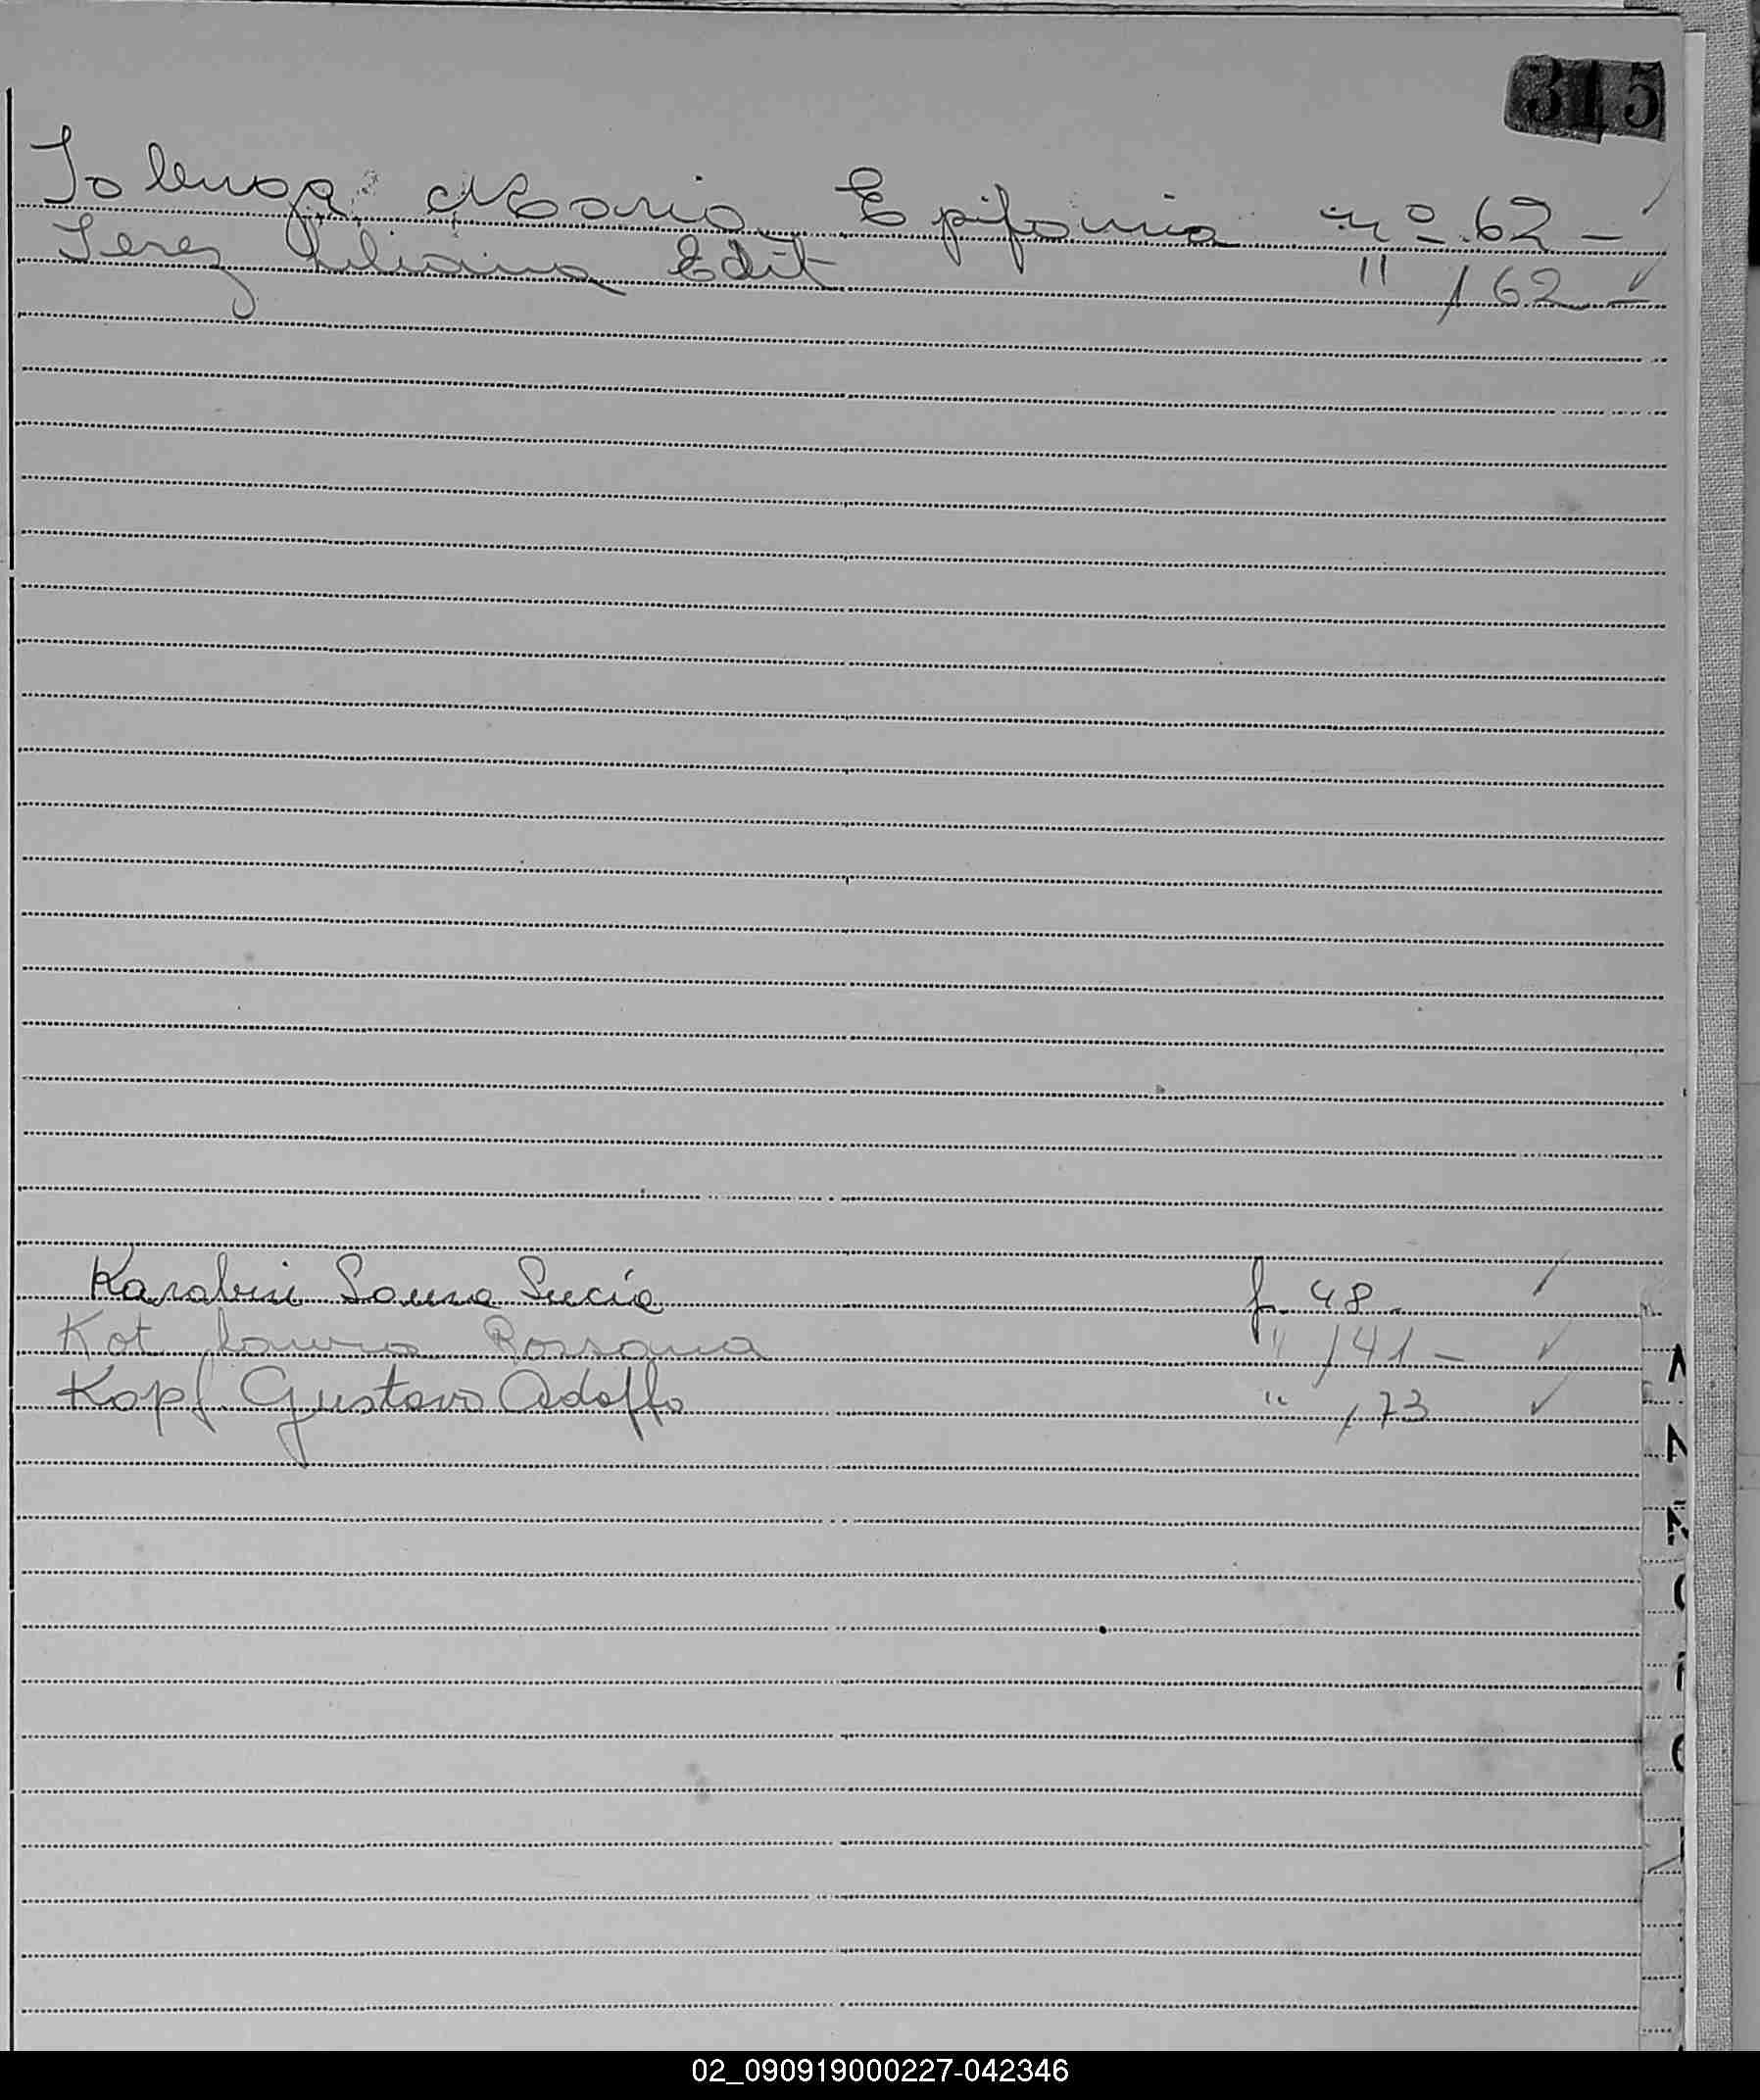 315
Maria Epifania nº 62 -
Jerez Liliana Edit " / 62 -
Karabin Laura Lucía f. 48 -
Kot Laura Rossana " / 41 -
Kopf Gustavo Adolfo " / 73
02_090919000227-042346